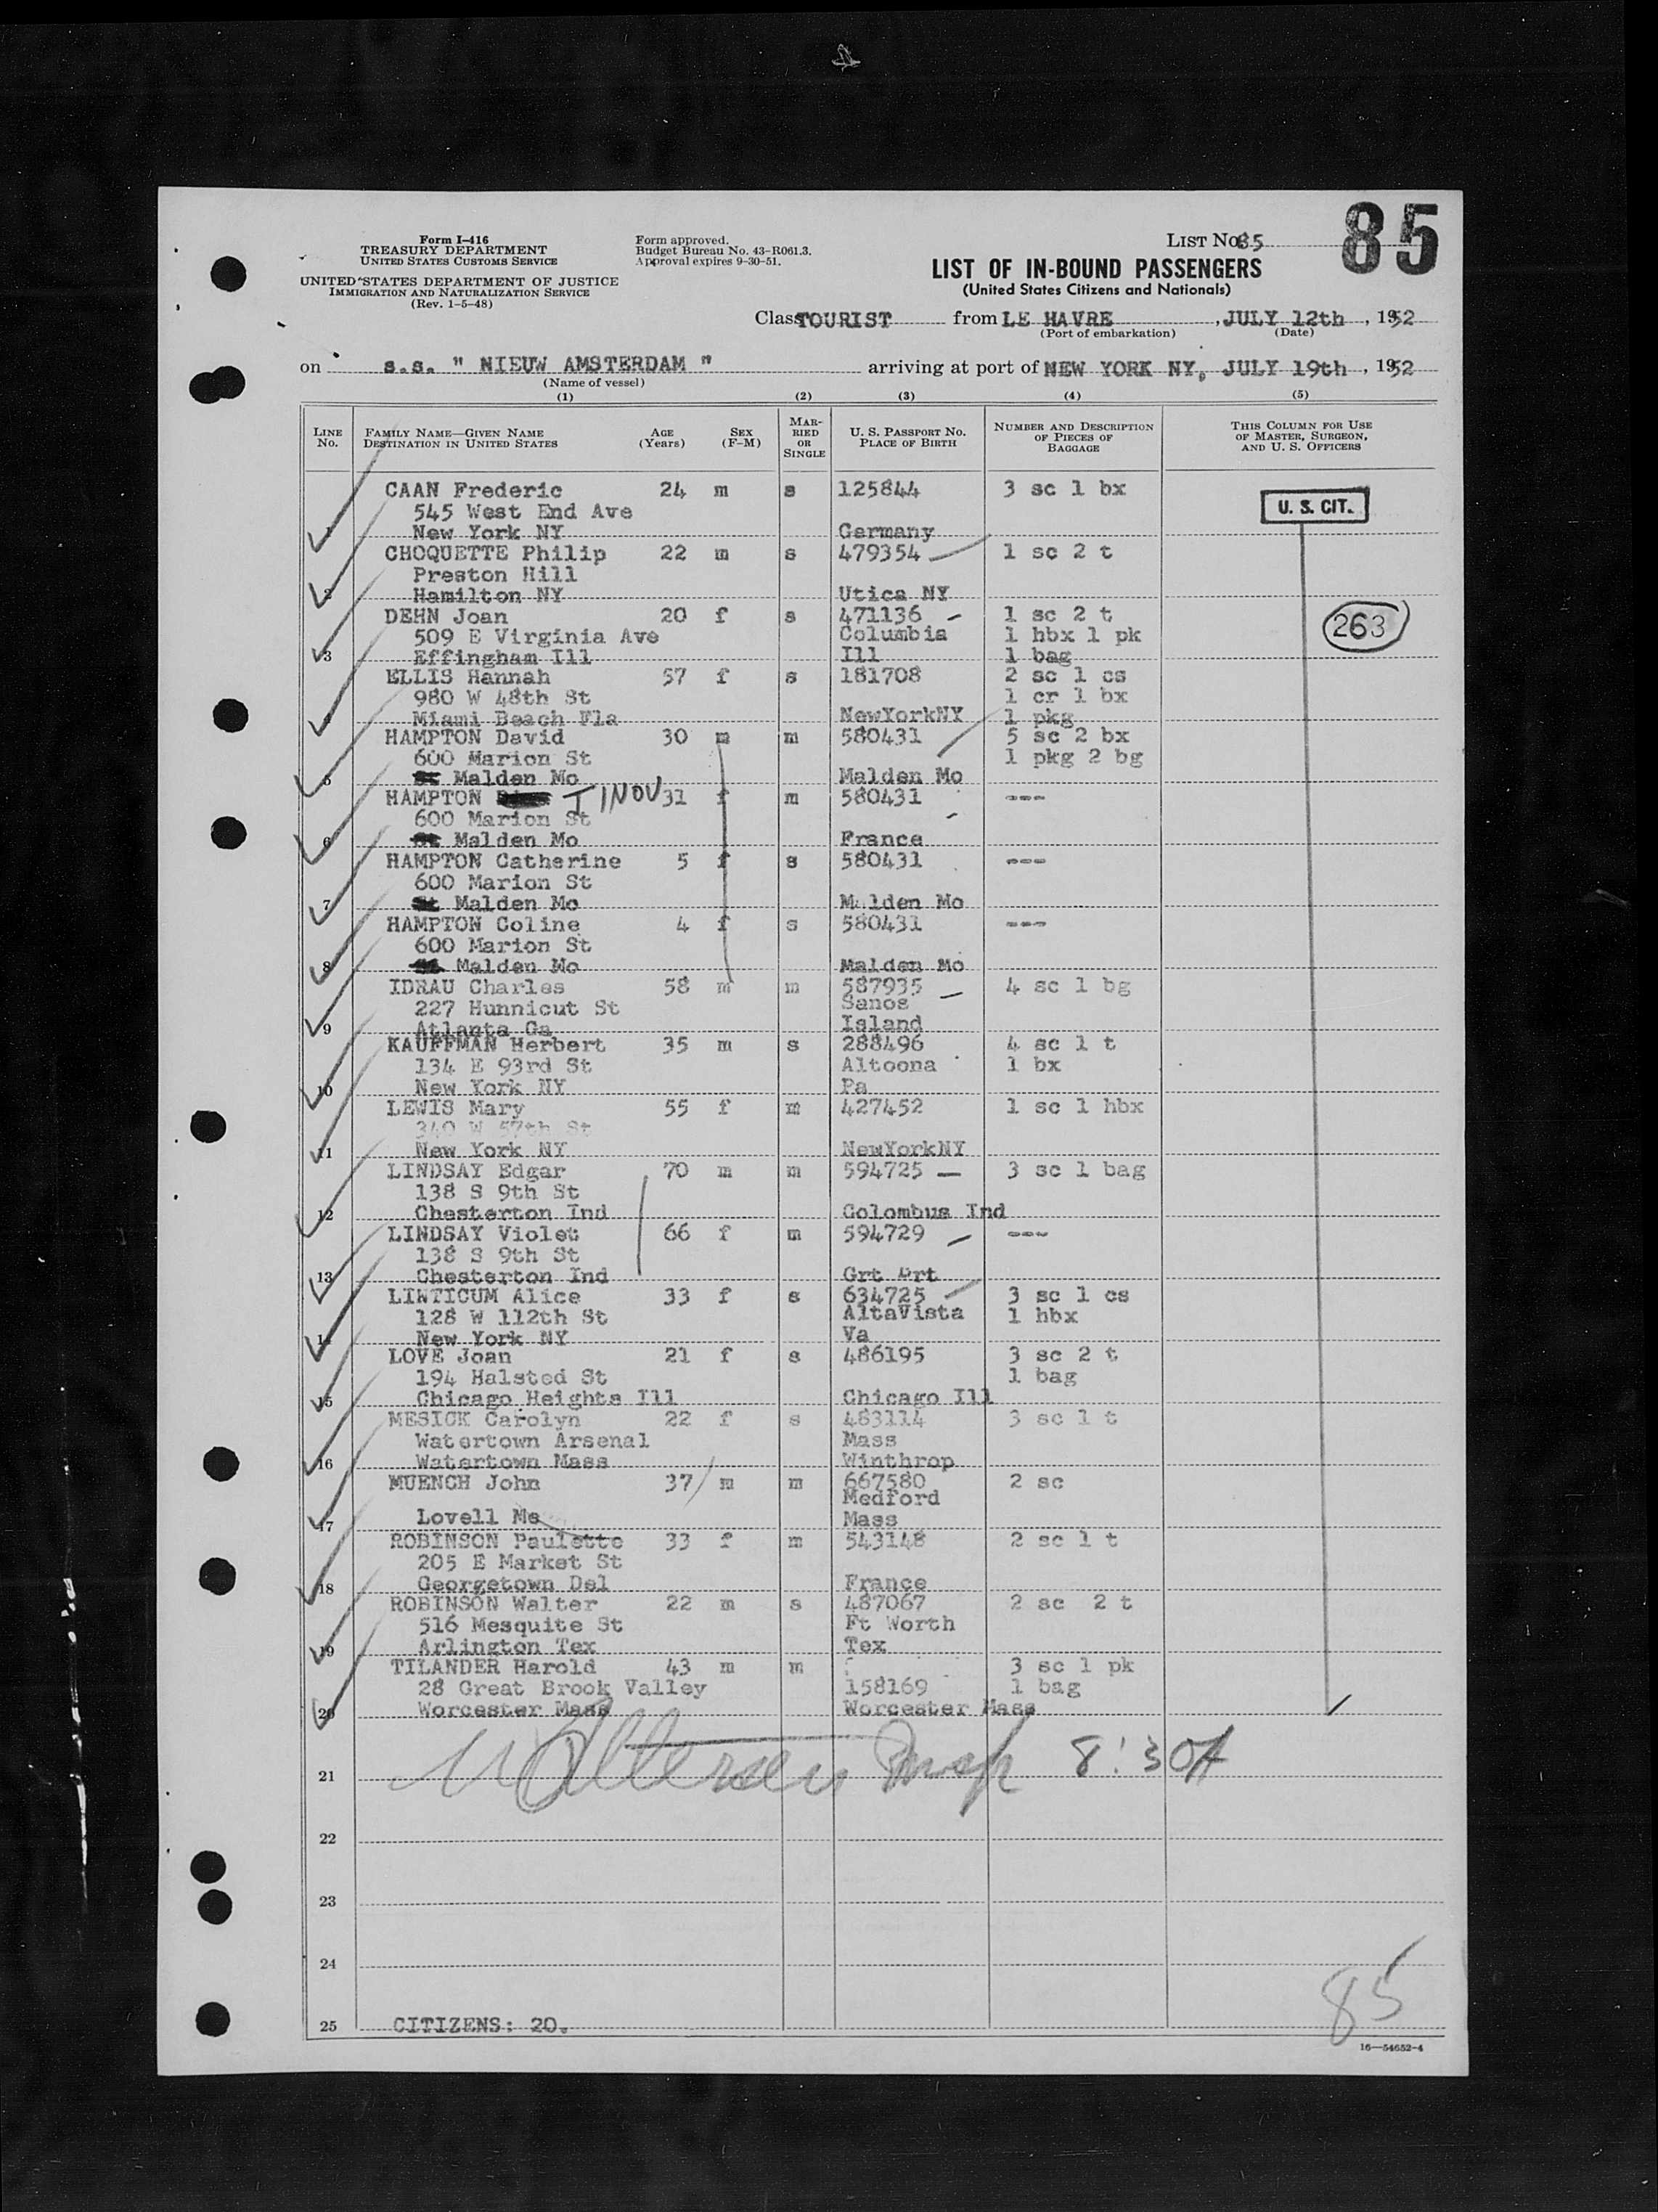 85
Form I-416
TREASURY DEPARTMENT
UNITED STATES CUSTOMS SERVICE
UNITED STATES DEPARTMENT OF JUSTICE
IMMIGRATION AND NATURALIZATION SERVICE
(Rev. 1-5-48)
Form approved.
Budget Bureau No. 43-R061.3.
Approval expires 9-30-51.
LIST No. 85
LIST OF IN-BOUND PASSENGERS
(United States Citizens and Nationals)
Class TOURIST from LE HAVRE, JULY 12th, 1952
(Port of embarkation) (Date)
on s.s. " NIEUW AMSTERDAM " arriving at port of NEW YORK NY, JULY 19th, 1952
(Name of vessel)
(1) (2) (3) (4) (5)
LINE No. FAMILY NAME—GIVEN NAME DESTINATION IN UNITED STATES AGE (Years) SEX (F-M) MARRIED OR SINGLE U. S. PASSPORT NO. PLACE OF BIRTH NUMBER AND DESCRIPTION OF PIECES OF BAGGAGE THIS COLUMN FOR USE OF MASTER, SURGEON, AND U. S. OFFICERS
CAAN Frederic 24 m s 125844 3 sc 1 bx
545 West End Ave U. S. CIT.
1 New York NY Germany
CHOQUETTE Philip 22 m s 479354 1 sc 2 t
Preston Hill
2 Hamilton NY Utica NY
DEHN Joan 20 f s 471136 1 sc 2 t
509 E Virginia Ave Columbia 1 hbx 1 pk 263
3 Effingham Ill Ill 1 bag
ELLIS Hannah 57 f s 181708 2 sc 1 cs
980 W 48th St 1 cr 1 bx
4 Miami Beach Fla NewYorkNY 1 pkg
HAMPTON David 30 m m 580431 5 sc 2 bx
600 Marion St 1 pkg 2 bg
5 Malden Mo Malden Mo
HAMPTON INOV 31 f m 580431 ---
600 Marion St
6 Malden Mo France
HAMPTON Catherine 5 f s 580431 ---
600 Marion St
7 Malden Mo Malden Mo
HAMPTON Coline 4 f s 580431 ---
600 Marion St
8 Malden Mo Malden Mo
IDRAU Charles 58 m m 587935 4 sc 1 bg
227 Hunnicut St Sanos
9 Atlanta Ga Island
KAUFFMAN Herbert 35 m s 288496 4 sc 1 t
134 E 93rd St Altoona 1 bx
10 New York NY Pa
LEWIS Mary 55 f m 427452 1 sc 1 hbx
340 W 57th St
11 New York NY NewYorkNY
LINDSAY Edgar 70 m m 594725 3 sc 1 bag
138 S 9th St
12 Chesterton Ind Colombus Ind
LINDSAY Violet 66 f m 594729 ---
138 S 9th St
13 Chesterton Ind Grt Brt
LINTICUM Alice 33 f s 634725 3 sc 1 cs
128 W 112th St AltaVista 1 hbx
14 New York NY Va
LOVE Joan 21 f s 486195 3 sc 2 t
194 Halsted St 1 bag
15 Chicago Heights Ill Chicago Ill
MESICK Carolyn 22 f s 483114 3 sc 1 t
Watertown Arsenal Mass
16 Watertown Mass Winthrop
MUENCH John 37 m m 667580 2 sc
Medford
17 Lovell Me Mass
ROBINSON Paulette 33 f m 543148 2 sc 1 t
205 E Market St
18 Georgetown Del France
ROBINSON Walter 22 m s 487067 2 sc 2 t
516 Mesquite St Ft Worth
19 Arlington Tex Tex
TILANDER Harold 43 m m 3 sc 1 pk
28 Great Brook Valley 158169 1 bag
20 Worcester Mass Worcester Mass
21 8:30A
22
23
24
25 CITIZENS: 20.
85
16-54652-4